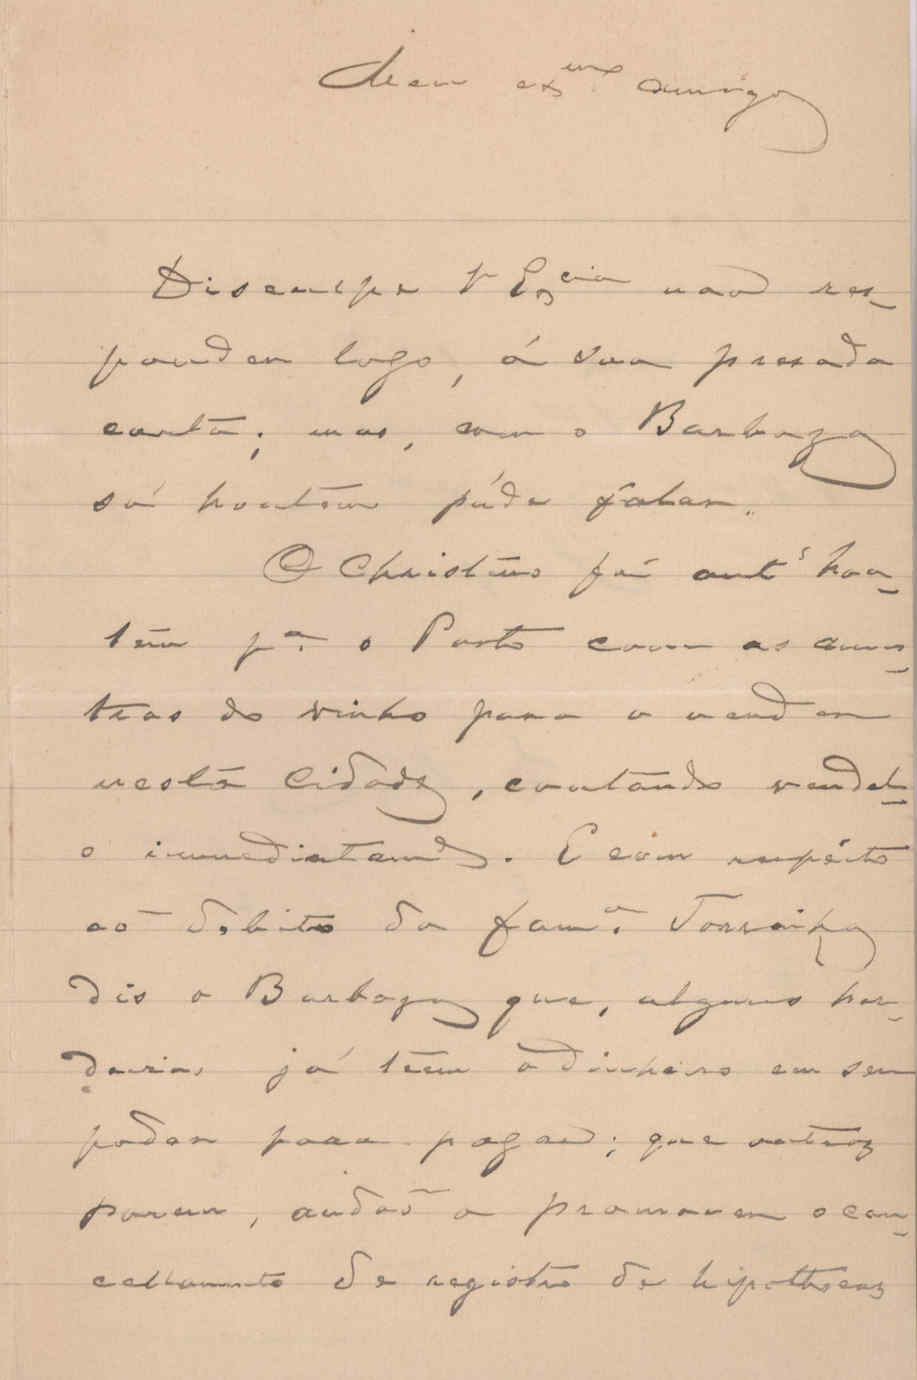 Meu exmo amigo
Disculpe V Excia não res-
ponder logo, á sua presada
carta; mas, com o Barboza
só hontem púde falar.
O Christino foi ant' hon-
tem pa. o Porto com as amos-
tras do vinho para o vender
nesta Cidade, contando vendel-
o immediatame. E com respeito
aõ debito da fama.
diz o Barboza que, alguns her-
deiros já têem o dinheiro em seu
poder para pagar; que outros
porem, andaõ a promover o can-
cellamento de registro de hipothecas